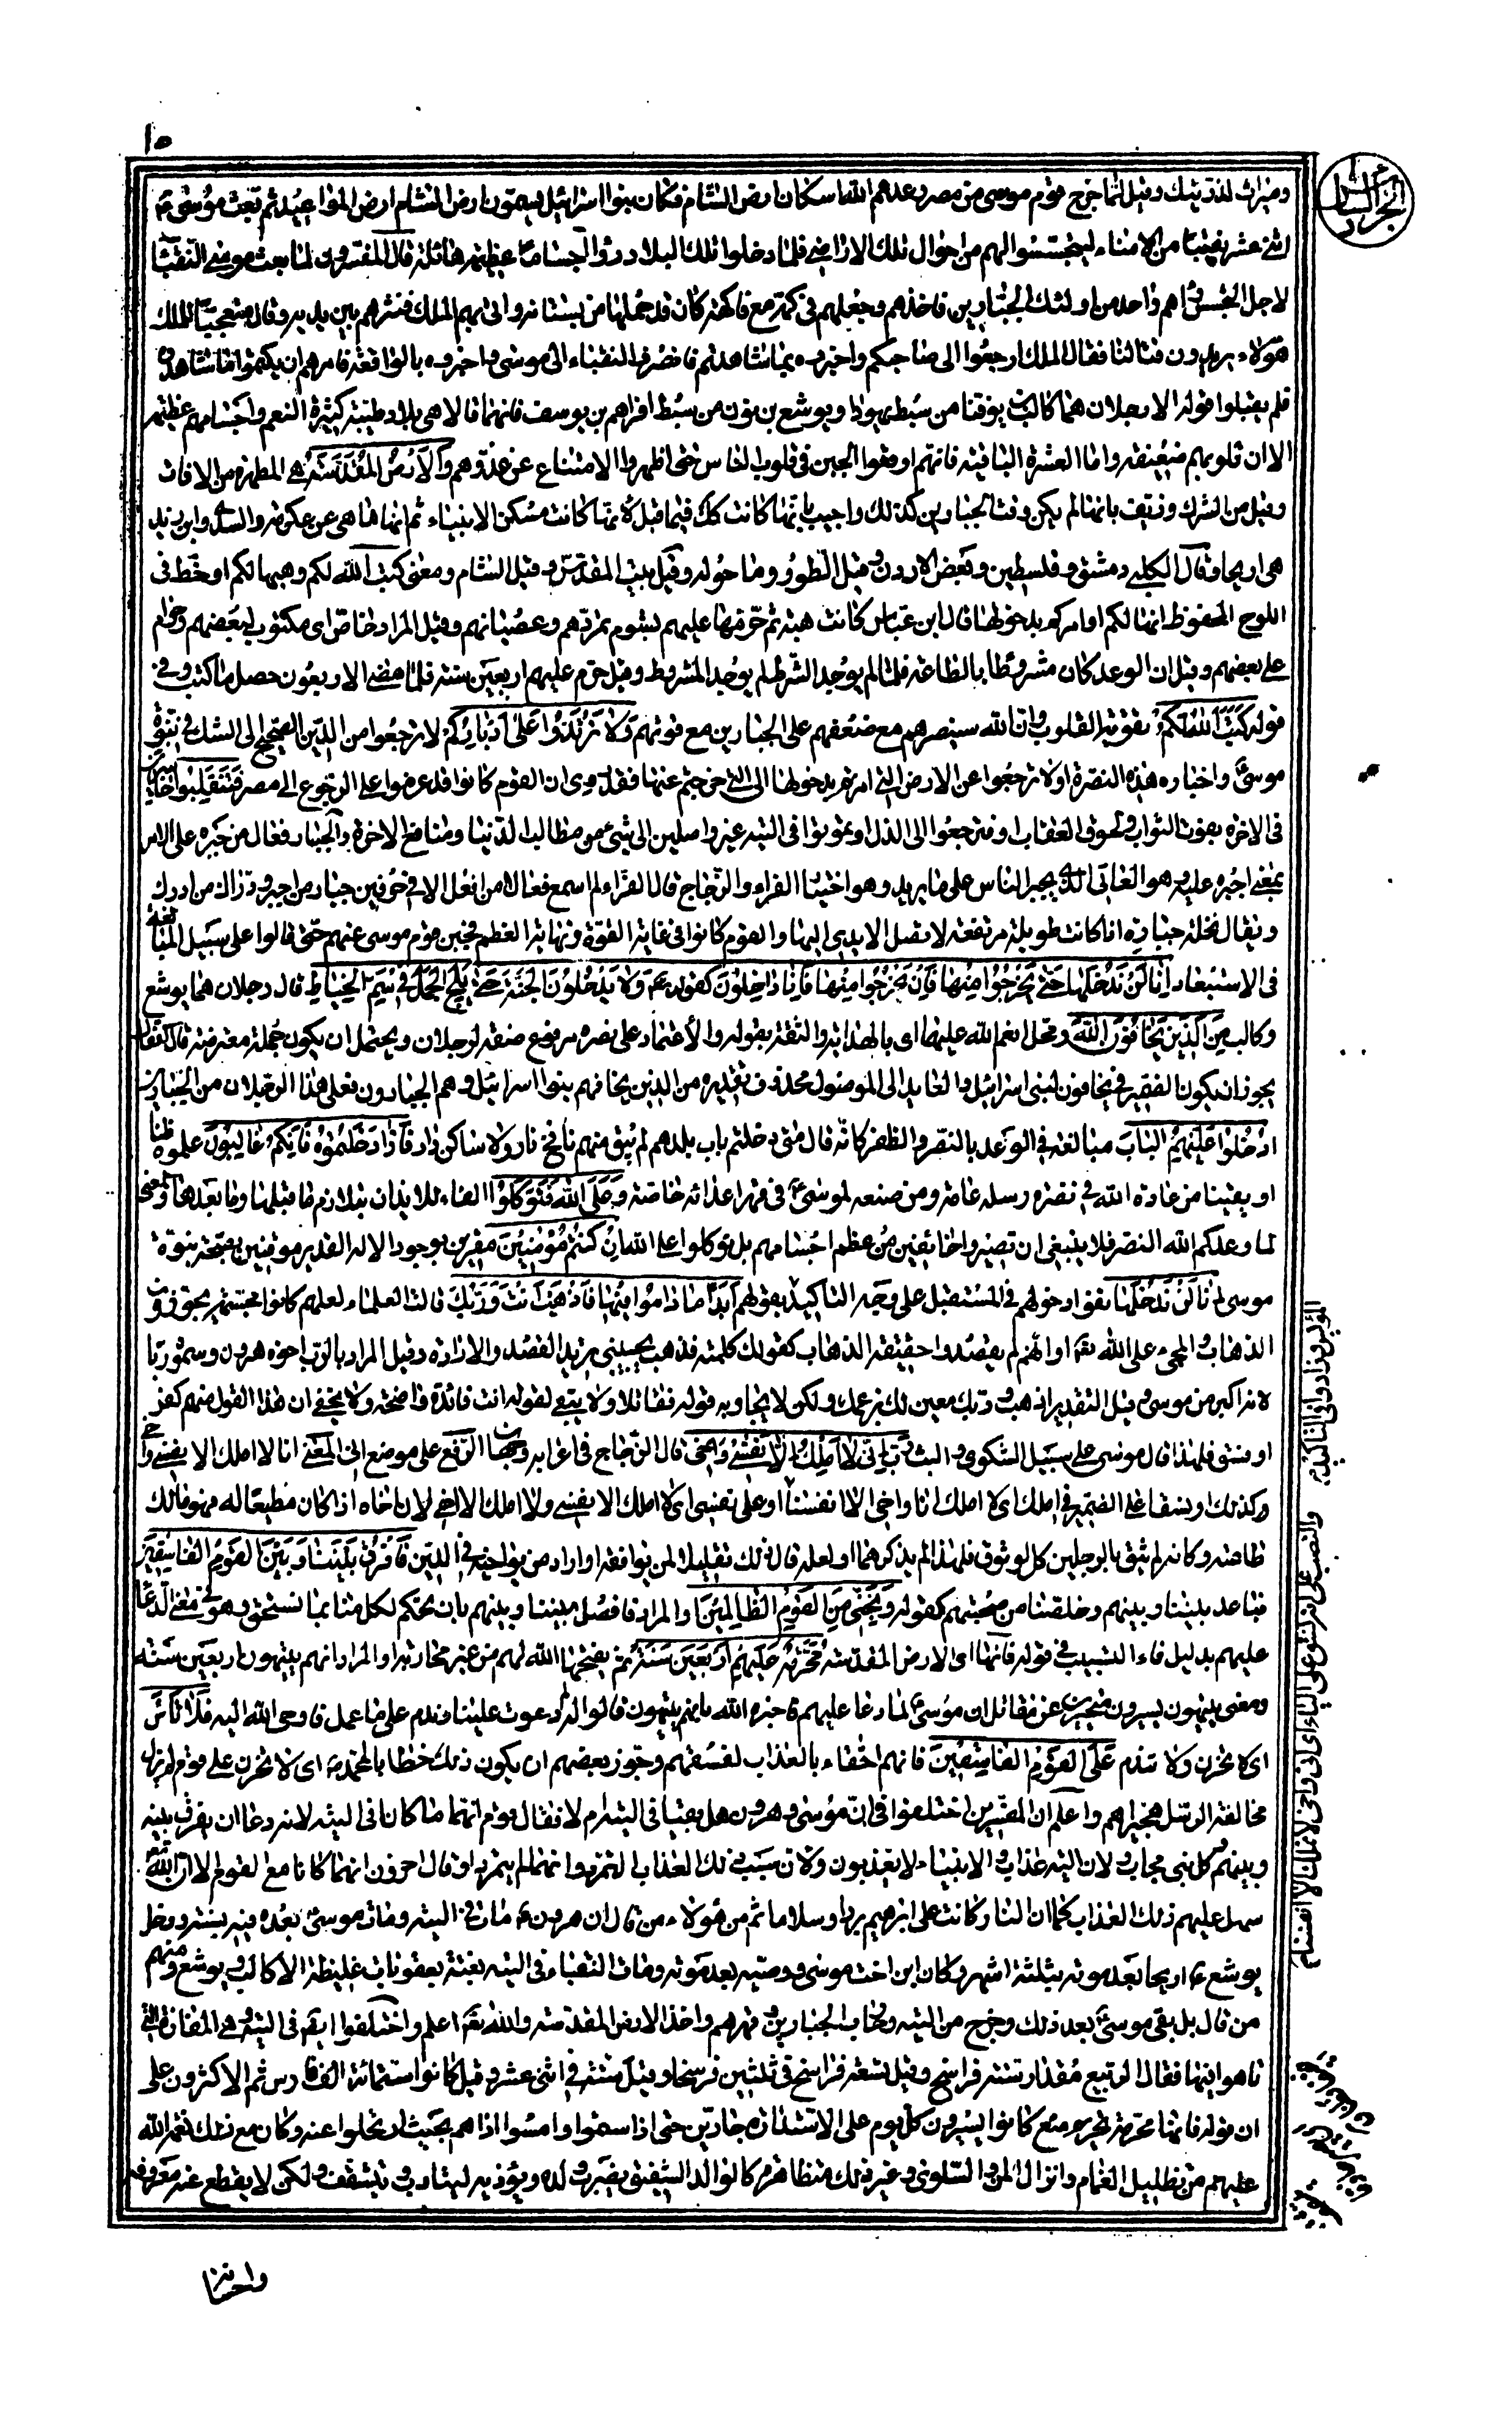 ١٥
الجزء السادس
وميراث لذريتك وقيل لما خرج قوم موسى من مصر وعدهم الله اسكان ارض الشام فكان بنوا اسرائيل يسمون ارض الشام ارض المواعيد ثم بعث موسى ع
اثنى عشر نقيبا من الامناء ليتجسسوا لهم من احوال تلك الاراضى فلما دخلوا تلك البلاد رأوا اجساما عظيمة هائلة قال المفسرون لما بعث موسى النقباء
لاجل التجسس رآهم واحد من اولئك الجبارين فاخذهم وجعلهم فى كمه مع فاكهة كان قد حملها من بستانه واتى بهم الملك فنثرهم بين يديه وقال متعجبا للملك
هؤلاء يريدون قتالنا فقال الملك ارجعوا الى صاحبكم واخبروه بما شاهدتم فانصرف النقباء الى موسى واخبروه بالواقعة فامرهم ان يكتموا ما شاهدوه
فلم يقبلوا قوله الا رجلان هما كالب بن يوفنا من سبط يهودا ويوشع بن نون من سبط افراهيم بن يوسف فانهما قالا هى بلاد طيبة كثيرة النعم واجسامهم عظيمة
الا ان قلوبهم ضعيفة واما العشرة الباقية فانهم اوقعوا الجبن فى قلوب الناس حتى اظهروا الامتناع عن غزوهم والارض المقدسة هى المطهرة من الافات
وقيل من الشرك وزيف بانها لم يكن وقت الجبارين كذلك واجيب بانها كانت كك فيما قبل لانها كانت مسكن الانبياء ثم انها ما هى عن عكرمة والسدى وابن زيد
هى اريحا وقال الكلبى دمشق وفلسطين وبعض الاردن وقيل الطور وما حوله وقيل بيت المقدس وقيل الشام ومعنى كتب الله لكم وهبها لكم او خط فى
اللوح المحفوظ انها لكم او امركم بدخولها قال ابن عباس كانت هبة ثم حرمها عليهم بشوم تمردهم وعصيانهم وقيل المراد خاص اى مكتوب لبعضهم وحرام
على بعضهم وقيل ان الوعد كان مشروطا بالطاعة فلما لم يوجد الشرط لم يوجد المشروط وقيل حرم عليهم اربعين سنة فلما مضى الاربعون حصل ما كتب وفى
قوله كتب الله لكم تقوية القلوب وان الله سينصرهم مع ضعفهم على الجبارين مع قوتهم ولا ترتدوا على ادباركم لا ترجعوا من الدين الصحيح الى الشك فى نبوة
موسى واخباره هذه النصرة او لا ترجعوا عن الارض التى امرتم بدخولها الى التى خرجتم عنها فقد روى ان القوم كانوا قد عزموا على الرجوع الى مصر فتنقلبوا خاسرين
فى الاخرة بفوت الثواب ولحوق العقاب او فترجعوا الى الذل او تموتوا فى التيه غير واصلين الى شىء من مطالب الدنيا ومنافع الاخرة والجبار فعال من جبره على الامر
بمعنى اجبره عليه وهو العاتى الذى يجبر الناس على ما يريد وهو اختيار الفراء والزجاج قال الفراء لم اسمع فعالا من افعل الا فى حرفين جبار من اجبر ودراك من ادرك
ويقال نخلة جبارة اذا كانت طويلة مرتفعة لا تصل الايدى اليها والقوم كانوا فى غاية القوة ونهاية العظم فجبن قوم موسى عنهم حتى قالوا على سبيل المبالغة
فى الاستبعاد انا لن ندخلها حتى يخرجوا منها فان يخرجوا منها فانا داخلون كقوله تع ولا يدخلون الجنة حتى يلج الجمل فى سم الخياط قال رجلان هما يوشع
وكالب من الذين يخافون الله ومحل انعم الله عليهما اى بالهداية والثقة بقوله والاعتماد على نصره مرفوع صفة لرجلان ويحتمل ان يكون جملة معترضة قال القفال
يجوز ان يكون الضمير فى يخافون لبنى اسرائيل والعايد الى الموصول محذوف تقديره من الذين يخافهم بنوا اسرائيل وهم الجبارون فعلى هذا الرجلان من الجبارين
ادخلوا عليهم الباب مبالغة فى الوعد بالنصر والظفر كانه قال متى دخلتم باب بلدهم لم يبق منهم نافخ نار ولا ساكن دار فاذا دخلتموه فانكم غالبون علموه ظنا
او يقينا من عادة الله فى نصرة رسله عامة ومن صنعه لموسى ع فى قهر اعدائه خاصة وعلى الله فتوكلوا الفاء للايذان بتلازم ما قبلها وما بعدها والمعنى
لما وعدكم الله النصر فلا ينبغى ان تصيروا خائفين من عظم اجسامهم بل توكلوا على الله ان كنتم مؤمنين مقرين بوجود الاله القدير موقنين بصحة نبوة
موسى ع انا لن ندخلها نفوا دخولهم فى المستقبل على وجه التاكيد بقولهم ابدا ما داموا فيها فاذهب انت وربك قالت العلماء لعلهم كانوا مجسمة يجوزون
الذهاب والمجىء على الله تع او انهم لم يقصدوا حقيقة الذهاب كقولك كلمته فذهب يجيبنى تريد القصد والارادة وقيل المراد بالرب اخوه هرون وسموه ربا
لانه اكبر من موسى وقيل التقدير اذهب وربك معين لك بزعمك ولكن لا يجاوبه قوله فقاتلا ولا يبقى لقوله انت فائدة واضحة ولا يخفى ان هذا القول منهم كفر
او فسق فلهذا قال موسى على سبيل الشكوى والبث رب انى لا املك الا نفسى واخى قال الزجاج فى اعرابه وجهان الرفع على موضع انى المعنى انا لا املك الا نفسى واخى
كذلك او نسقا على الضمير فى املك اى لا املك انا واخى الا انفسنا او على نفسى اى لا املك الا نفسى ولا املك الا اخى لان اخاه اذا كان مطيعا له فهو مالك
طاعته وكانه لم يثق بالرجلين كل الوثوق فلهذا لم يذكرهما او لعله قال ذلك تقليلا لمن يوافقه او اراد من يواخيه فى الدين فافرق بيننا وبين القوم الفاسقين
فباعد بيننا وبينهم وخلصنا من صحبتهم كقوله ونجنى من القوم الظالمين والمراد فافصل بيننا وبينهم بان تحكم لكل منا بما نستحق وهو فى معنى الدعاء
عليهم بدليل فاء التسبيب فى قوله فانها اى الارض المقدسة محرمة عليهم اربعين سنة ثم يفتحها الله لهم من غير محاربة او المراد انهم يتيهون اربعين سنة
ومعنى يتيهون يسيرون متحيرين عن مقاتل ان موسى لما دعا عليهم فاخبره الله بانهم يتيهون قالوا له لم دعوت علينا وندم على ما عمل فاوحى الله اليه فلا تاس
اى لا تحزن ولا تندم على القوم الفاسقين فانهم احقاء بالعذاب لفسقهم وجوز بعضهم ان يكون ذلك خطابا لمحمد اى لا تحزن على قوم لم يزل
مخالفة الرسل هجيراهم واعلم ان المفسرين اختلفوا فى ان موسى وهرون هل بقيا فى التيه ام لا فقال قوم انهما ما كانا فى التيه لانه دعا ان يفرق بينه
وبينهم وكل نبى مجاب ولان التيه عذاب والانبياء لا يعذبون ولان سبب ذلك العذاب التمرد وانهما لم يتمردا وقال اخرون انهما كانا مع القوم الا ان الله تع
سهل عليهم ذلك العذاب كما ان النار كانت على ابرهيم بردا وسلاما ثم من هؤلاء من قال ان هرون ع مات فى التيه ومات موسى بعده فيه بسنة ودخل
يوشع ع اريحا بعد موته بثلثة اشهر وكان ابن اخت موسى ووصيه بعد موته ومات النقباء فى التيه بغتة بعقوبات غليظة الا كالب ويوشع ومنهم
من قال بل بقى موسى بعد ذلك وخرج من التيه وحارب الجبارين وقهرهم واخذ الارض المقدسة والله تع اعلم واختلفوا ايضا فى التيه وهى المفازة التى
تاهوا فيها فقال الربيع مقدار ستة فراسخ وقيل تسعة فراسخ فى ثلثين فرسخا وقيل ستة فى اثنى عشر وقيل كانوا ستمائة الف فارس ثم الاكثرون على
ان قوله فانها محرمة تحريم منع كانوا يسيرون كل يوم على الاستدارة جادين حتى اذا سئموا وامسوا اذا هم بحيث ارتحلوا عنه وكان مع ذلك نعم الله
عليهم من تظليل الغمام وانزال المن والسلوى وغير ذلك متظاهرة كالوالد الشفيق يضرب ولده ويؤذيه ليتادب ويتثقف ولكن لا يقطع عنه معروفه
والنصب على انه نسق على الياء اى انى واخى لا نملك الا انفسنا
واحسانه